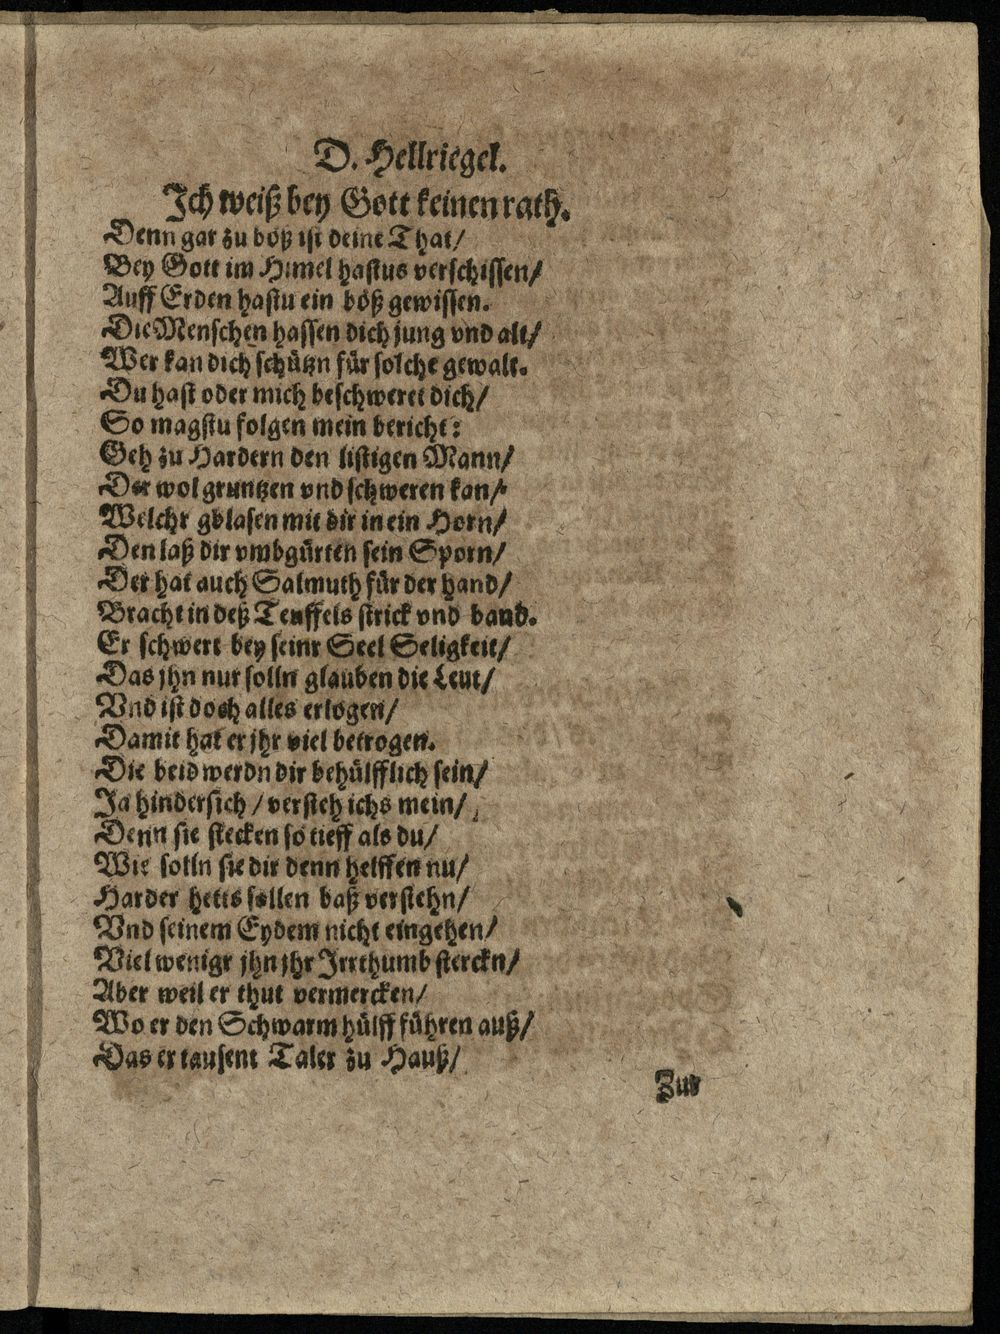 D. Hellriegel.
Ich weiß bey Gott keinen rath.
Denn gar zu böß ist deine That/
Bey Gott im Himel hastus verschissen/
Auff Erden hastu ein böß gewissen.
Die Menschen hassen dich jung vnd alt/
Wer kan dich schützn für solche gewalt.
Du hast oder mich beschweret dich/
So magstu folgen mein bericht:
Geh zu Hardern den listigen Mann/
Der wol gruntzen vnd schweren kan/
Welchr gblasen mit dir in ein Horn/
Den laß dir vmbgürten sein Sporn/
Der hat auch Salmuth für der hand/
Bracht in deß Teuffels strick vnd band.
Er schwert bey seinr Seel Seligkeit/
Das jhn nur solln glauben die Leut/
Vnd ist doch alles erlogen/
Damit hat er jhr viel betrogen.
Die beid werdn dir behülfflich sein/
Ja hindersich / versteh ichs mein/
Denn sie stecken so tieff als du/
Wie solln sie dir denn helffen nu/
Harder hetts sollen baß verstehn/
Vnd seinem Eydem nicht eingehen/
Viel wenigr jhn jhr Irrthumb sterckn/
Aber weil er thut vermercken/
Wo er den Schwarm hülff führen auß/
Das er tausent Taler zu Hauß/
Zur